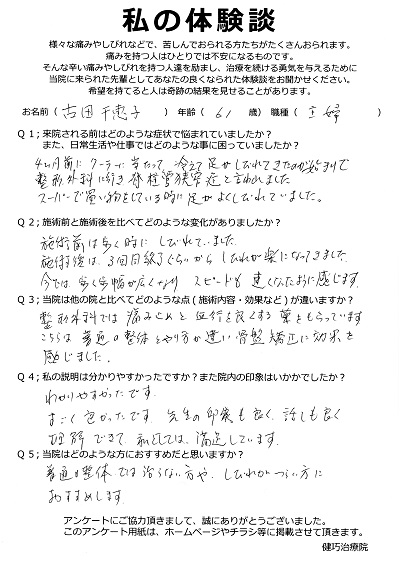 私の体験談
様々な痛みやしびれなどで、苦しんでおられる方たちがたくさんおられます。
痛みを持つ人はひとりでは不安になるものです。
そんな辛い痛みやしびれを持つ人達を励まし、治療を続ける勇気を与えるために
当院に来られた先輩としてあなたの良くなられた体験談をお聞かせください。
希望を持てると人は奇跡の結果を見せることがあります。
お名前 ( 吉田 千恵子 ) 年齢 ( 61 歳 ) 職種 ( 主婦 )
Q１；来院される前はどのような症状で悩まれていましたか？
また、日常生活や仕事ではどのような事に困っていましたか？
4ヶ月前に クーラーに当たって、冷えて 足がしびれてきたのが始まりで
整形外科に行き 脊柱管狭窄症と言われました。
スーパーで買い物をしている時に 足がよくしびれていました。
Q２；施術前と施術後を比べてどのような変化がありましたか？
施術前は歩く時に しびれていました。
施術後は、3回目終了ぐらいから しびれが楽になってきました。
今では 歩く歩幅が広くなり スピードも 速くなったように感じます。
Q３；当院は他の院と比べてどのような点 ( 施術内容・効果など ) が違いますか？
整形外科では 痛み止めと 血行を良くする 薬をもらっています
こちらは 普通の整体とやり方が違い 骨盤矯正に効果を
感じました。
Q４；私の説明は分かりやすかったですか？また院内の印象はいかかでしたか？
わかりやすかったです
すごく良かったです 先生の印象も良く、話しも良く
理解できて、私としては、満足しています。
Q５；当院はどのような方におすすめだと思いますか？
普通の整体では治らない方や、しびれがつらい方に
おすすめします
アンケートにご協力頂きまして、誠にありがとうございました。
このアンケート用紙は、ホームページやチラシ等に掲載させて頂きます。
健巧治療院